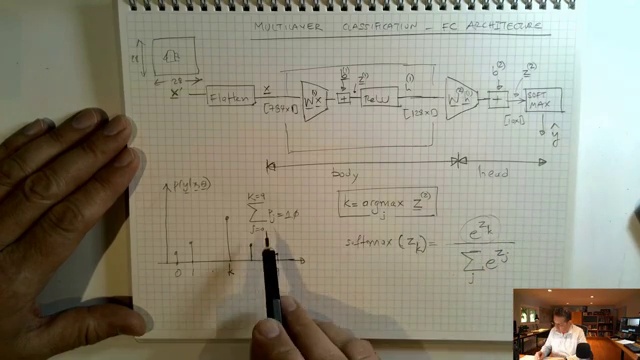 MULTILAYER CLASSIFICATION – FC ARCHITECTURE
28
28
x'
Flatten
x
[784x1]
W⁽¹⁾x
b⁽¹⁾
+
z⁽¹⁾
ReLU
h⁽¹⁾
[128x1]
W⁽²⁾h⁽¹⁾
b⁽²⁾
+
z⁽²⁾
[10x1]
SOFT
MAX
ŷ
body
head
p(y|x,θ)
K=9
Σ ŷj = 1.0
j=0
0 1 k
k = argmax z⁽²⁾
j
softmax (zk) = e^zk
Σ e^zj
j